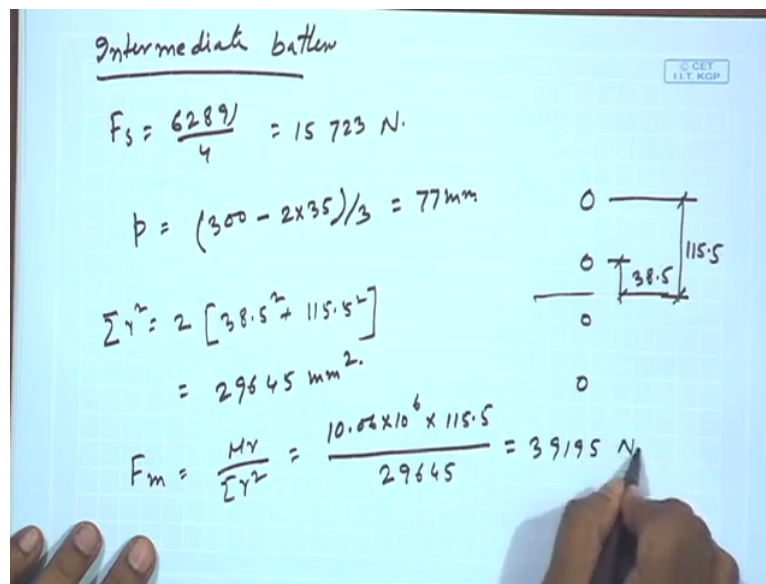 Intermediate batten
© CET
I.I.T. KGP
Fs = 62891/4 = 15 723 N.
p = (300 - 2×35)/3 = 77mm
115.5
38.5
Σr² = 2 [38.5² + 115.5²]
= 29645 mm².
Fm = Mr/Σr² = 10.06×10⁶ × 115.5/29645 = 39195 N